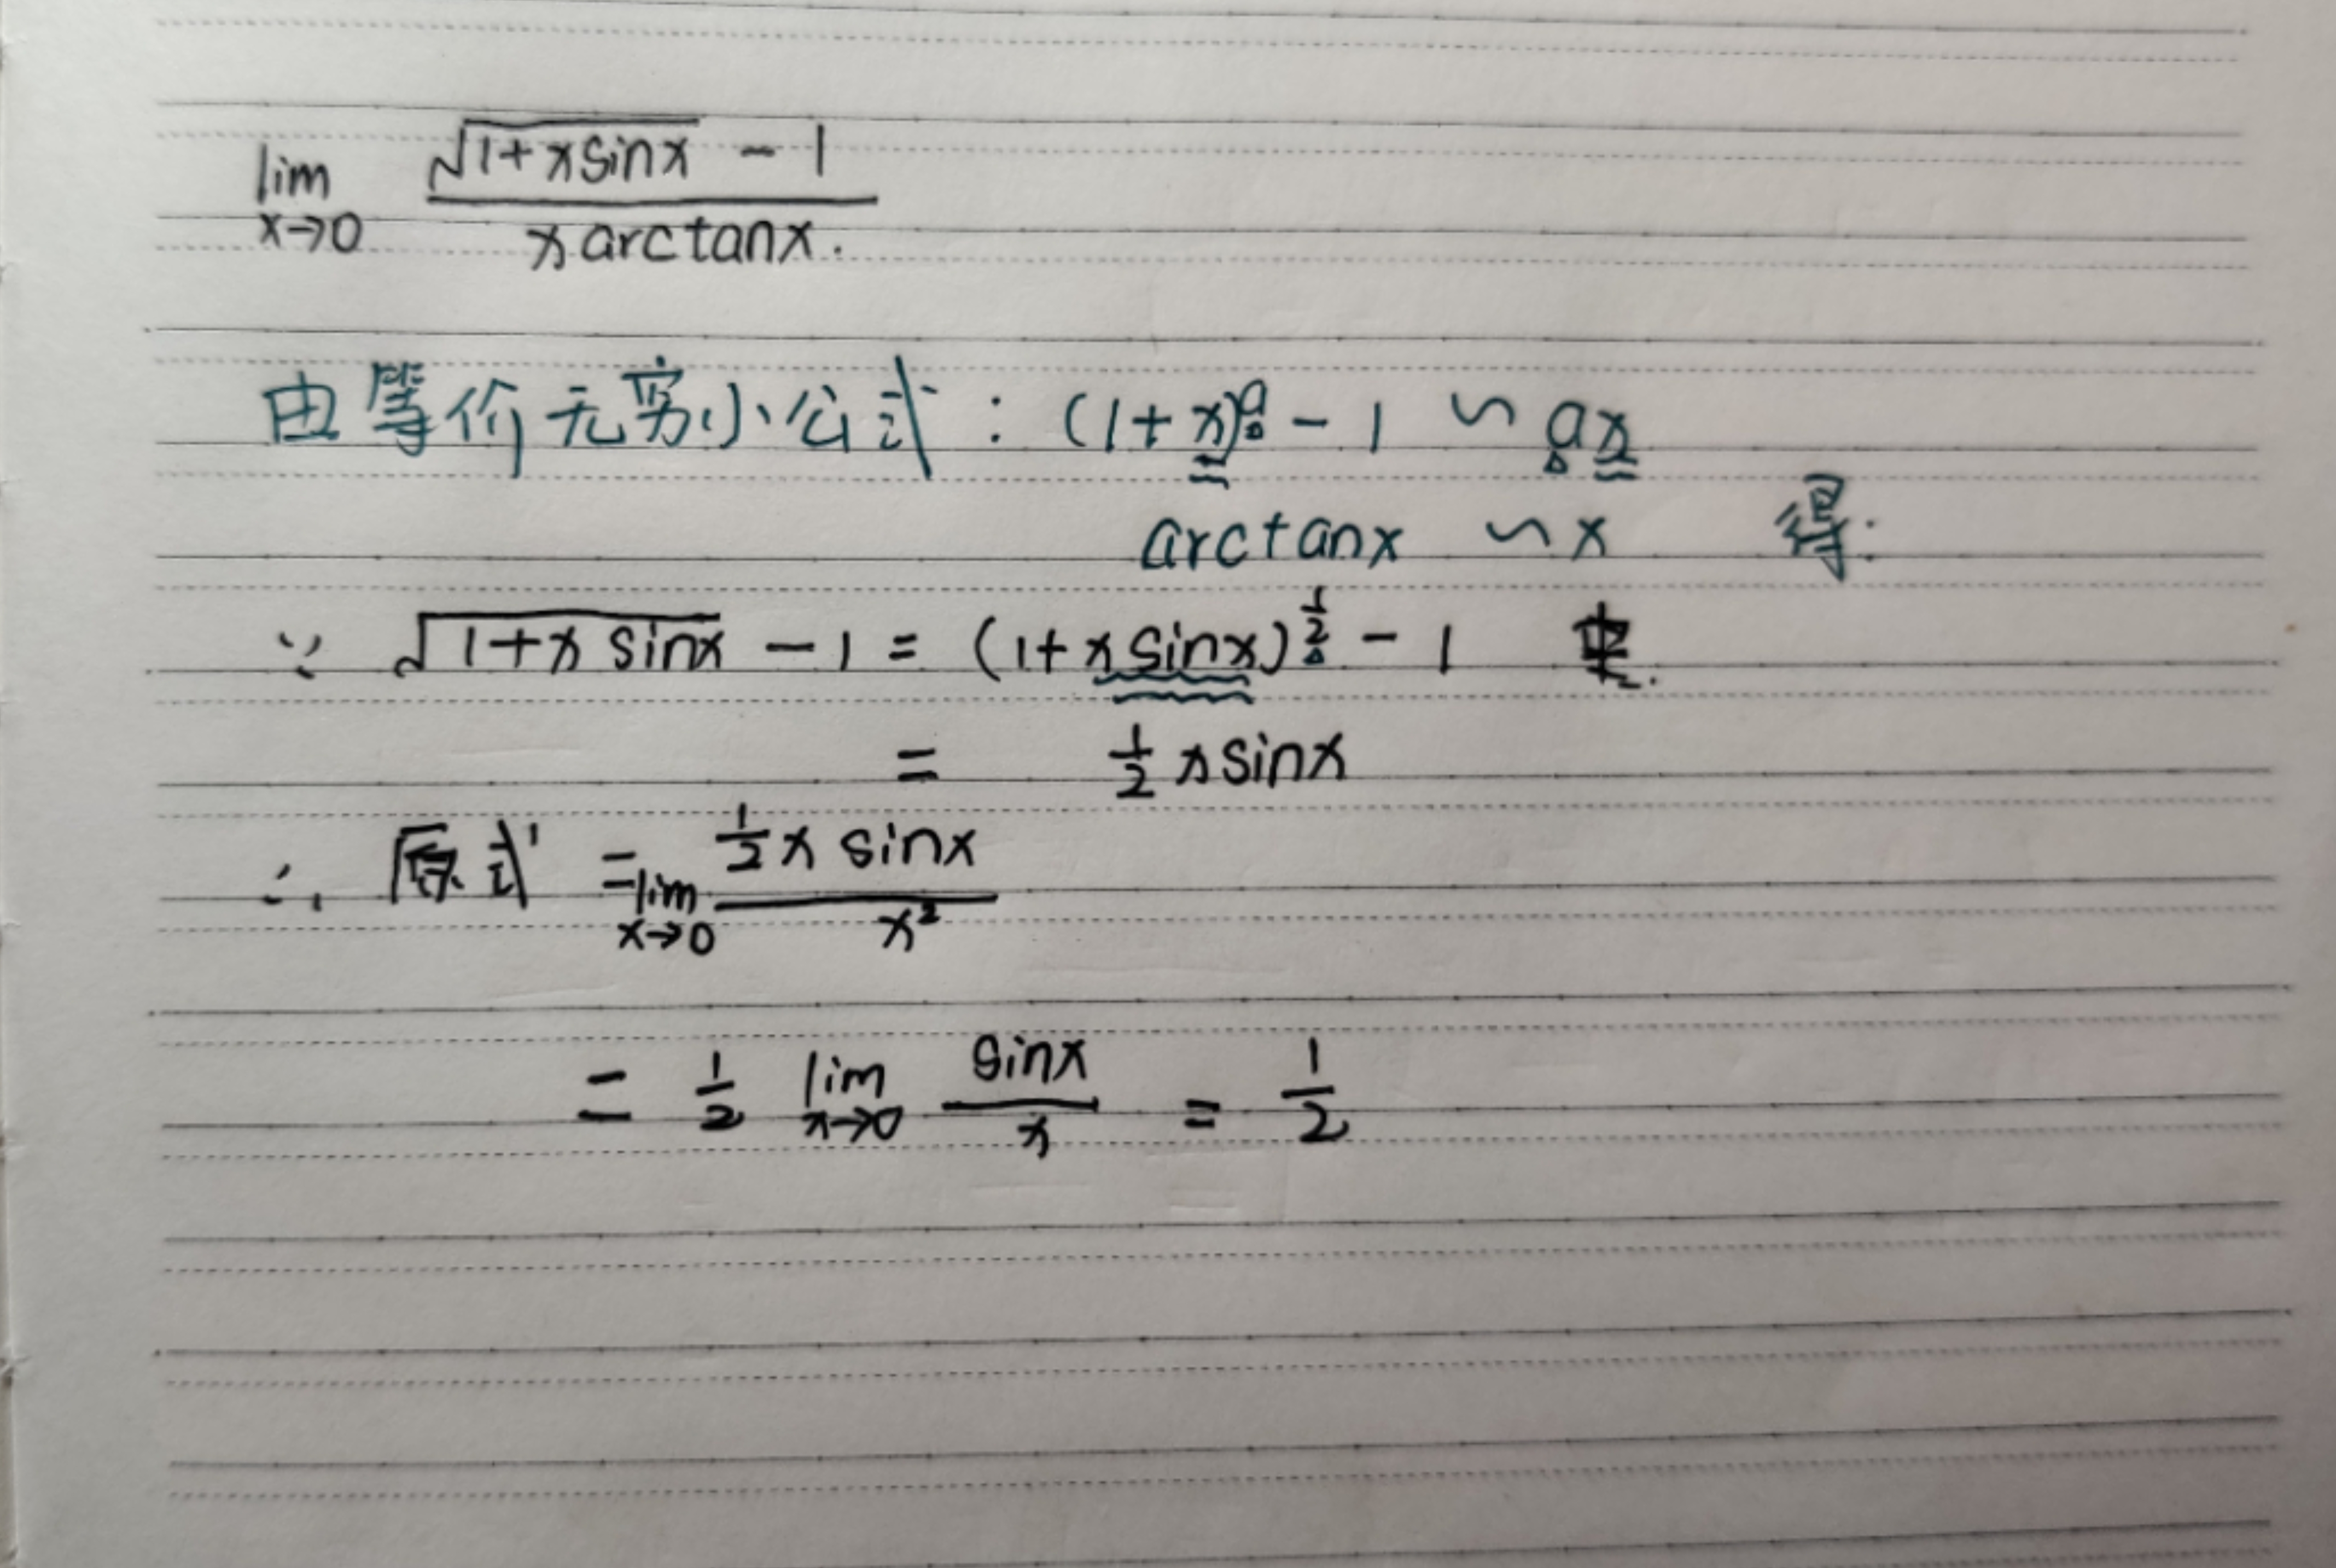 lim x→0 (√(1+xsinx) - 1) / (x arctanx).
由等价无穷小公式: (1+x)^a - 1 ∽ ax
arctanx ∽ x 得:
∵ √(1+x sinx) - 1 = (1+x sinx)^(1/2) - 1
= 1/2 x sinx
∴ 原式 = lim x→0 (1/2 x sinx) / x²
= 1/2 lim x→0 sinx / x = 1/2